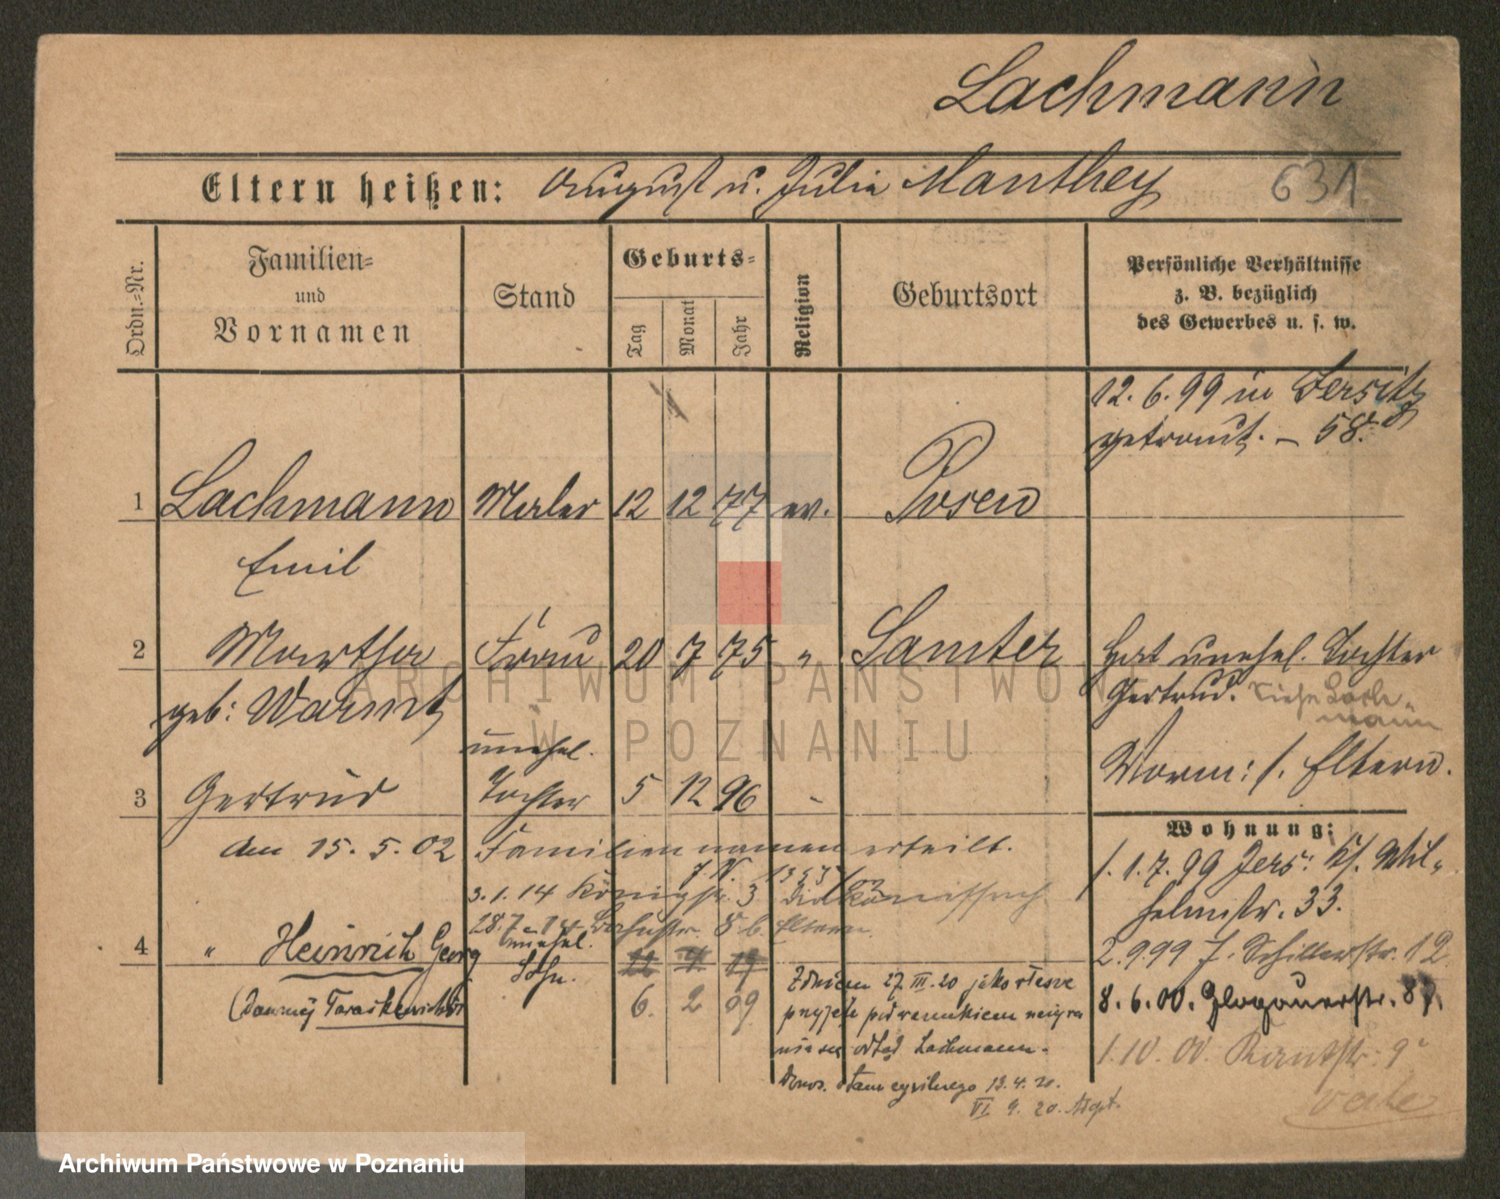 Lachmann
Eltern heißen: August u. Julia Manthey 631
Ordn.=Nr.
Familien=
und
Vornamen
Stand
Geburts=
Tag
Monat
Jahr
Religion
Geburtsort
Persönliche Verhältnisse
z. B. bezüglich
des Gewerbes u. s. w.
12. 6. 99 in Jersitz
getraut. – 58.
1 Lachmann Maler 12 12 77 ev. Posen
Emil
2 Martha Frau 20 7 75 " Samter Hat unehel. Tochter
geb: Warmt Gertrud. Siehe Lach-
mann
unehel.
3 Gertrud Tochter 5 12 96 Worm: s. Eltern.
den 15. 5. 02 Familiennamen erteilt.
Wohnung:
1. 1. 7. 99 Jers: Wil-
helmstr. 33.
3. 1. 14 Königstr. 3
28. 7. 14 8 b. Eltern
4 " Heinrich Georg unehel. 22 4 19
Sohn.
6. 2 09
2. 9 99 Schillerstr. 12
8. 6. 00. Glogauerstr. 87.
1. 10. 00.
27 III. 20 jako
pod nazwiskiem
odtąd Lachmann.
Stanu cywilnego 13. 4. 20.
VI 9. 20.
ARCHIWUM PAŃSTWOW
W POZNANIU
Archiwum Państwowe w Poznaniu